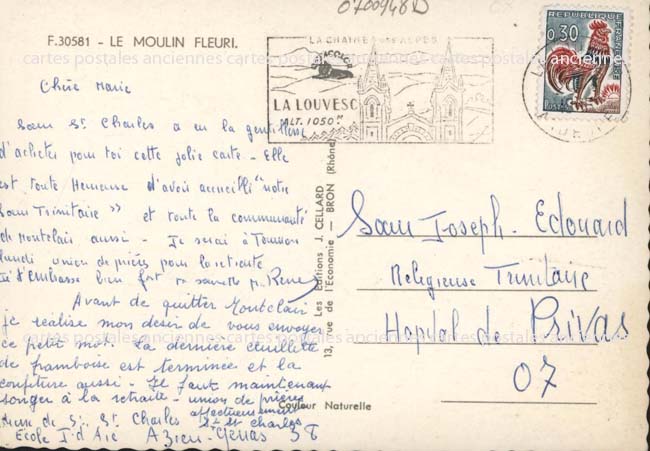 0700948D
F.30581 - LE MOULIN FLEURI.
LA CHAINE DES ALPES
LA LOUVESC
ALT. 1050m
REPUBLIQUE FRANÇAISE
0,30
Postes
cartes postales anciennes cartes postales anciennes cartes postales anciennes
Chère Marie
Sœur St Charles a eu la gentillesse
d'acheter pour toi cette jolie carte - Elle
est toute Heureuse d'avoir accueilli "notre
Sœur Trinitaire" et toute la communauté
de Montclair aussi - Je serai à Tournon
lundi union de prières pour la retraite
t'Embrasse bien fort ta
Avant de quitter Montclair
je réalise mon désir de vous envoyer
ce petit mot. La dernière cueillette
de framboise est terminée et la
confiture aussi - Il faut maintenant
songer à la retraite - union de prières
affectueusement
St Charles Sr St Charles
Ecole 38
13, rue de l'Economie — BRON (Rhône)
Les Editions J. CELLARD
Couleur Naturelle
Sœur Joseph-Edouard
Religieuse Trinitaire
Hopital de Privas
07